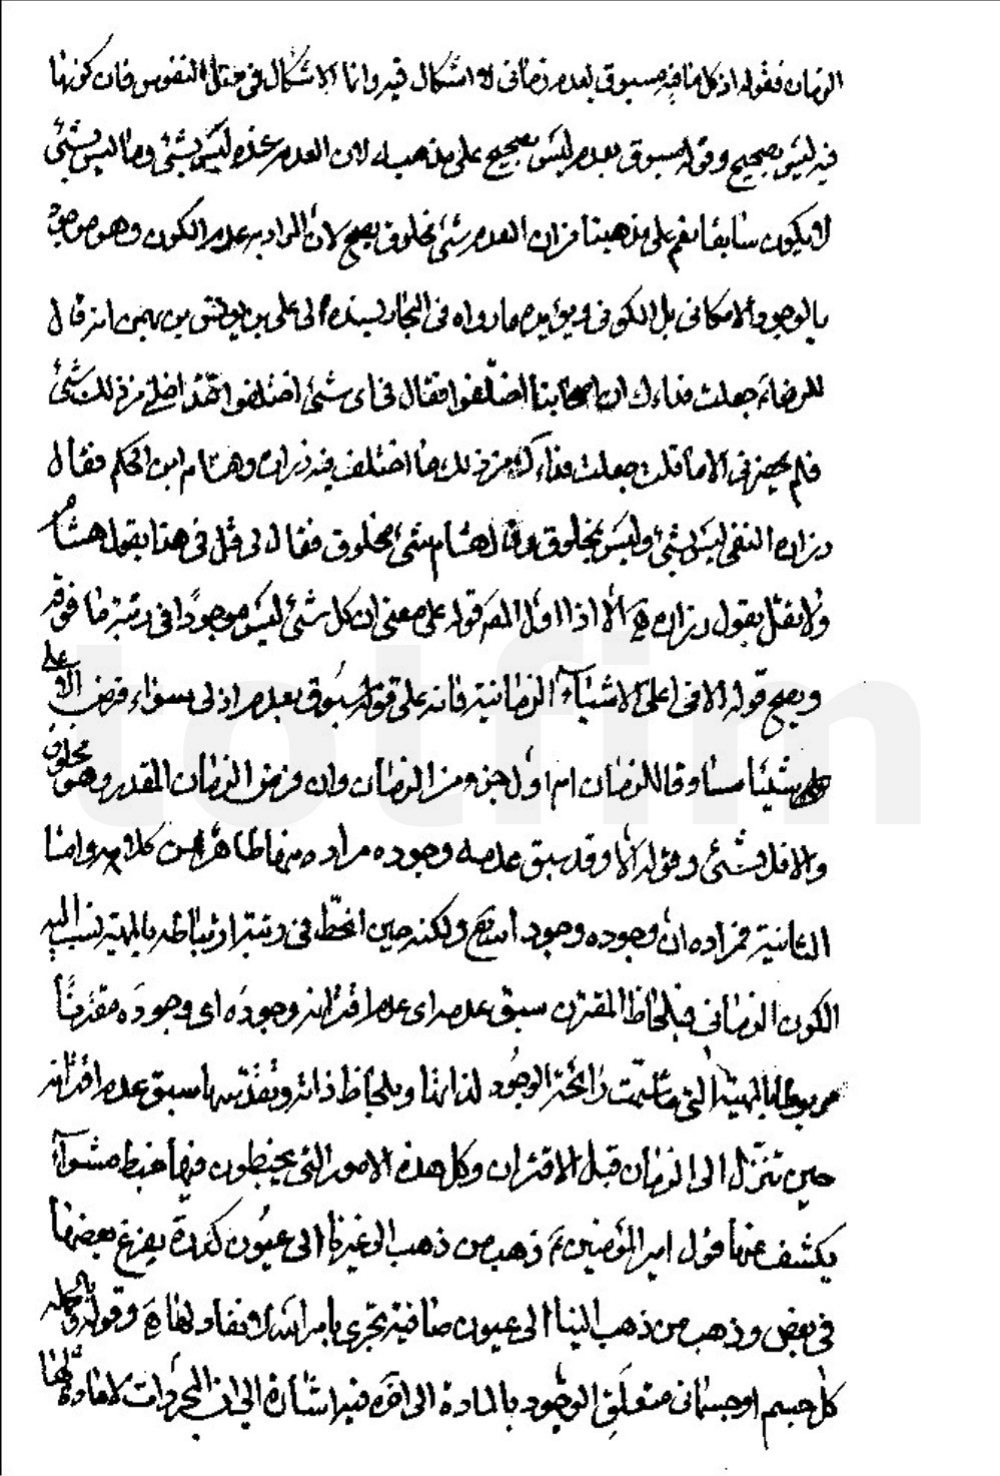 الزمان فقوله اذ كل ما فيه مسبوق بعدم زماني لا اشكال فيه وانما الاشكال في مثل النفوس فان كونها
فيه ليس بصحيح وقوله مسبوق بعدم ليس بصحيح على مذهبه لان العدم عنده ليس بشئ وما ليس بشئ
لا يكون سابقا نعم على مذهبنا من ان العدم شئ مخلوق يصح لان المراد به عدم الكون وهو موجود
بالوجود الامكاني بل الكوني ويؤيده ما رواه في البحار بسنده الى علي بن يونس بن بهمن انه قال
للرضا ع جعلت فداءك ان اصحابنا اختلفوا فقال في اى شئ اختلفوا احفظ من ذلك شئ
فلم يحضرني الا ما قلت جعلت فداءك من ذلك ما اختلف فيه زراره وهشام ابن الحكم فقال
زراره النفي ليس بشئ وليس بمخلوق وقال هشام شئ مخلوق فقال لي قل في هذا بقول هشام
ولا تقل بقول زراره الا اذا اول المص قوله على معنى ان كل شئ ليس موجودا في رتبة ما فوقه
ويصح قوله الا في اعلى الاشياء الزمانية فانه على قوله مسبوق بعدم ازلي سواء فرض الاعلى
شيئا مساوقا للزمان ام اول جزء من الزمان وان فرض الزمان المقدر وهو مخلوق
والا فلا شئ وقوله الا وقد سبق عدمه وجوده مراده منها ظاهر من كلامه واما
الثانية فمراده ان وجوده وجود ولكنه حين انحط في رتبة ارتباطه بالمهية نسب اليه
الكون الزماني فبلحاظ المقترن سبق عدمه اى عدم اقترانه وجوده اى وجوده مقترنا
مربوطا بالمهية التي ما شمت رائحة الوجود لذاتها وبلحاظ ذاته وتقدمها سبق عدم اقترانه
حين تنزل الى الزمان قبل الاقتران وكل هذه الامور التي يخبطون فيها خبط عشواء
يكشف عنها قول امير المؤمنين ع ذهب من ذهب الى غيرنا الى عيون كدرة يفرغ بعضها
في بعض وذهب من ذهب الينا الى عيون صافية تجري بامر الله لا نفاد لها وقوله وبالجملة
كل جسم او جسماني متعلق الوجود بالمادة الى اخره فيه اشارة الى ان المجردات لا مادة لها